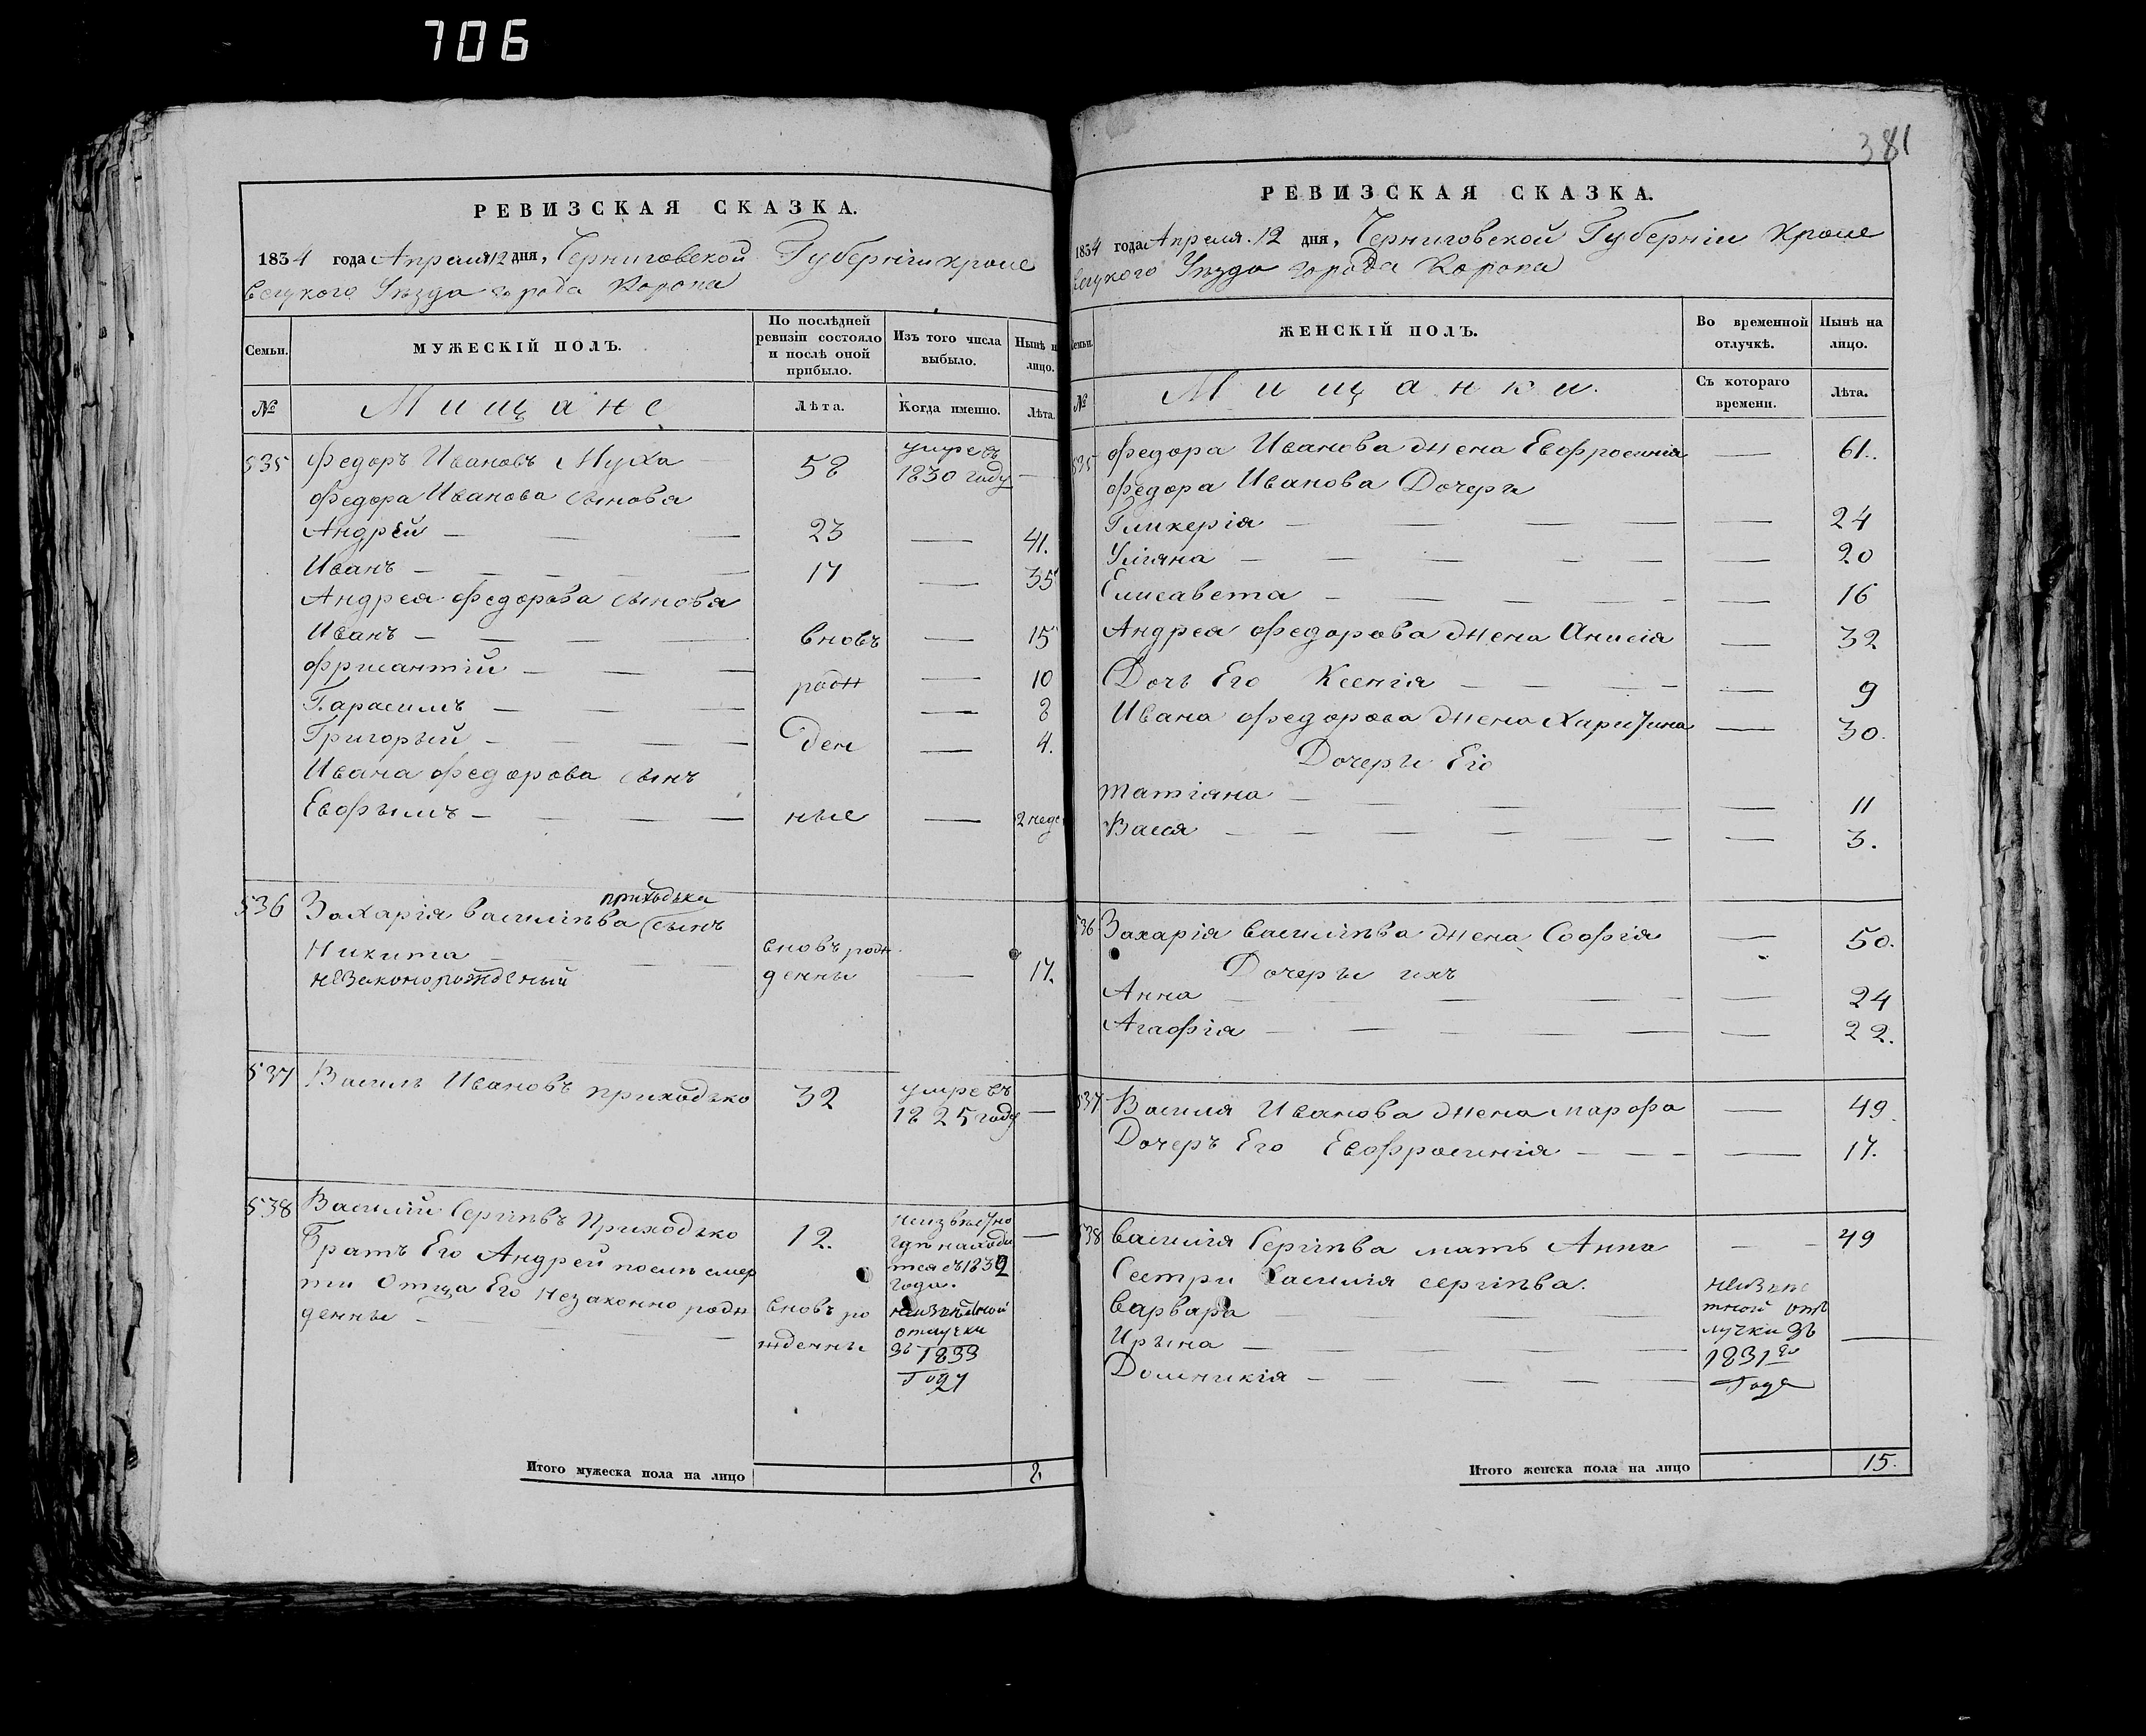 706
РЕВИЗСКАЯ СКАЗКА.
1834 года Апреля 12 дня, Черниговской Губернiи Кроле
вецкого Уезда города Коропа
Семьи.
МУЖЕСКІЙ ПОЛЪ.
По послѣдней ревизіи состояло и послѣ оной прибыло.
Изъ того числа выбыло.
Нынѣ н лицо.
№
Мищане
Лѣта.
Когда именно.
Лѣта.
535 Федоръ Ивановъ Муха 58 умре въ 1830 году —
Федора Иванова сыновя
Андрей — 23 — 41.
Иванъ — 17 — 35
Андрея Федорова сыновя
Иванъ — вновь — 15
Фрисантiй — рож — 10
Гарасимъ — — 8
Григорый — ден — 4.
Ивана Федорова сынъ
Евфымъ — ные — 2 неде
536 Захарiя Василѣва сынъ
приходька
Никита — вновь рож
незаконорожденый денны — 17.
537 Василь Ивановъ Приходько 32 умре въ 1825 году —
538 Василий Сергѣвъ Приходько 12. неизвѣстно —
Братъ Его Андрей послѣ смер
где находи
тся съ 1832
ти Отца Его незаконно рож
года.
денны — вновь ро
жденны
отлучки
зъ 1833
Году
Итого мужеска пола на лицо 8
381
РЕВИЗСКАЯ СКАЗКА.
1834 года Апреля 12 дня, Черниговской Губернiи Кроле
вецкого Уезда города Коропа
Семьи.
ЖЕНСКІЙ ПОЛЪ.
Во временной отлучкѣ.
Нынѣ на лицо.
№
Мищанки.
Съ котораго времени.
Лѣта.
535 Федора Иванова жена Евфросинiя — 61.
Федора Иванова Дочери
Гликерiя — — 24
Улiяна — — 20
Елисавета — — 16
Андрея Федорова жена Анисiя — 32
Дочь Его Ксенiя — — 9
Ивана Федорова жена Харитина — 30.
Дочери Его
Татiяна — — 11
Васса — — 3.
536 Захарiя Василѣва жена Софiя — 50.
Дочеры ихъ
Анна — — 24
Агафiя — — 22.
537 Василя Иванова жена Марфа — 49.
Дочеръ Его Евфросинiя — — 17.
538 Василiя Сергѣва мать Анна — 49
Сестри Василiя Сергѣва.
Варвара —
Ирына —
Доминикiя —
неизве
тной от
лучки зъ
1831 го
Года —
Итого женска пола на лицо 15.